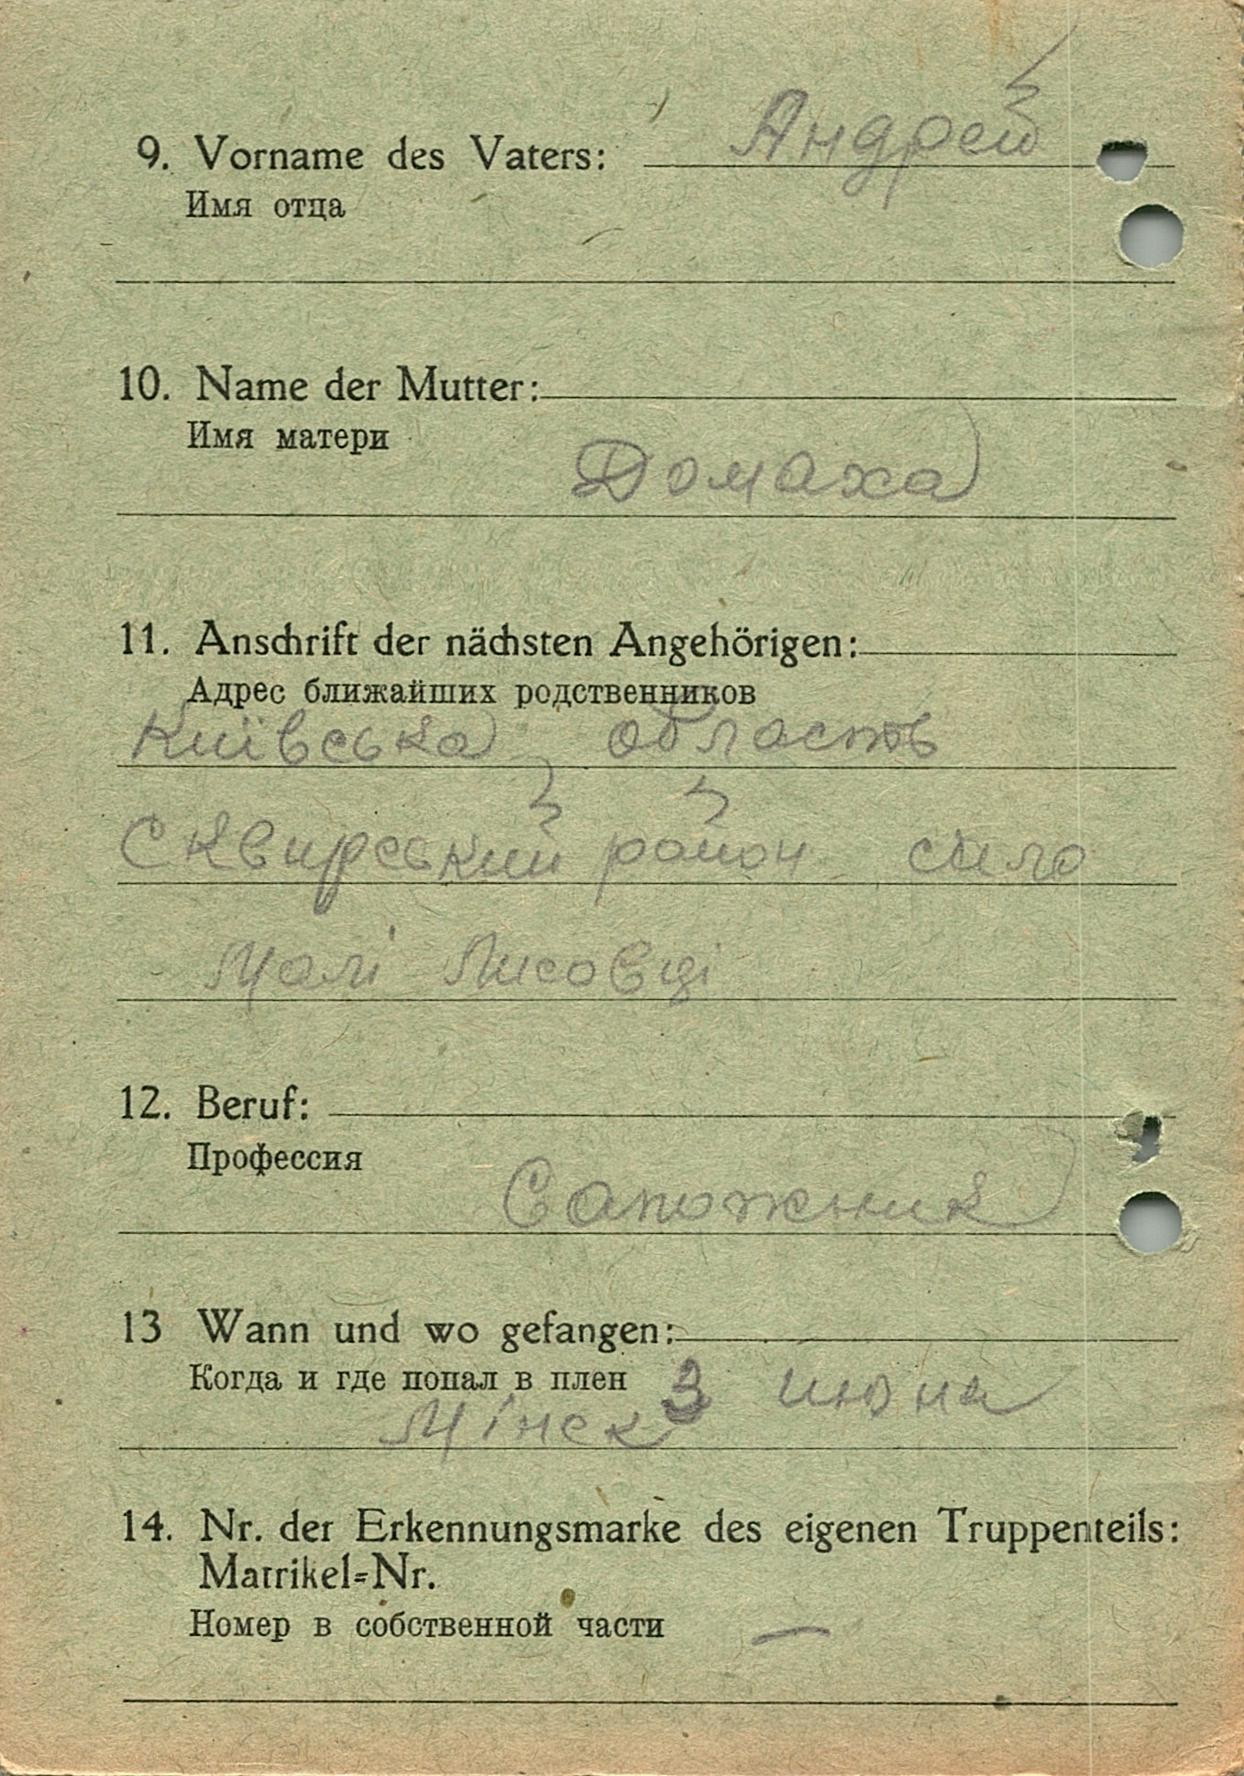 9. Vorname des Vaters: Андрей
Имя отца
10. Name der Mutter:
Имя матери
Домаха
11. Anschrift der nächsten Angehörigen:
Адрес ближайших родственников
Київська область
Сквирський район село
Малі Лисовці
12. Beruf:
Профессия
Сапожник
13 Wann und wo gefangen:
Когда и где попал в плен 3 июна
Мінск
14. Nr. der Erkennungsmarke des eigenen Truppenteils:
Matrikel=Nr.
Номер в собственной части —